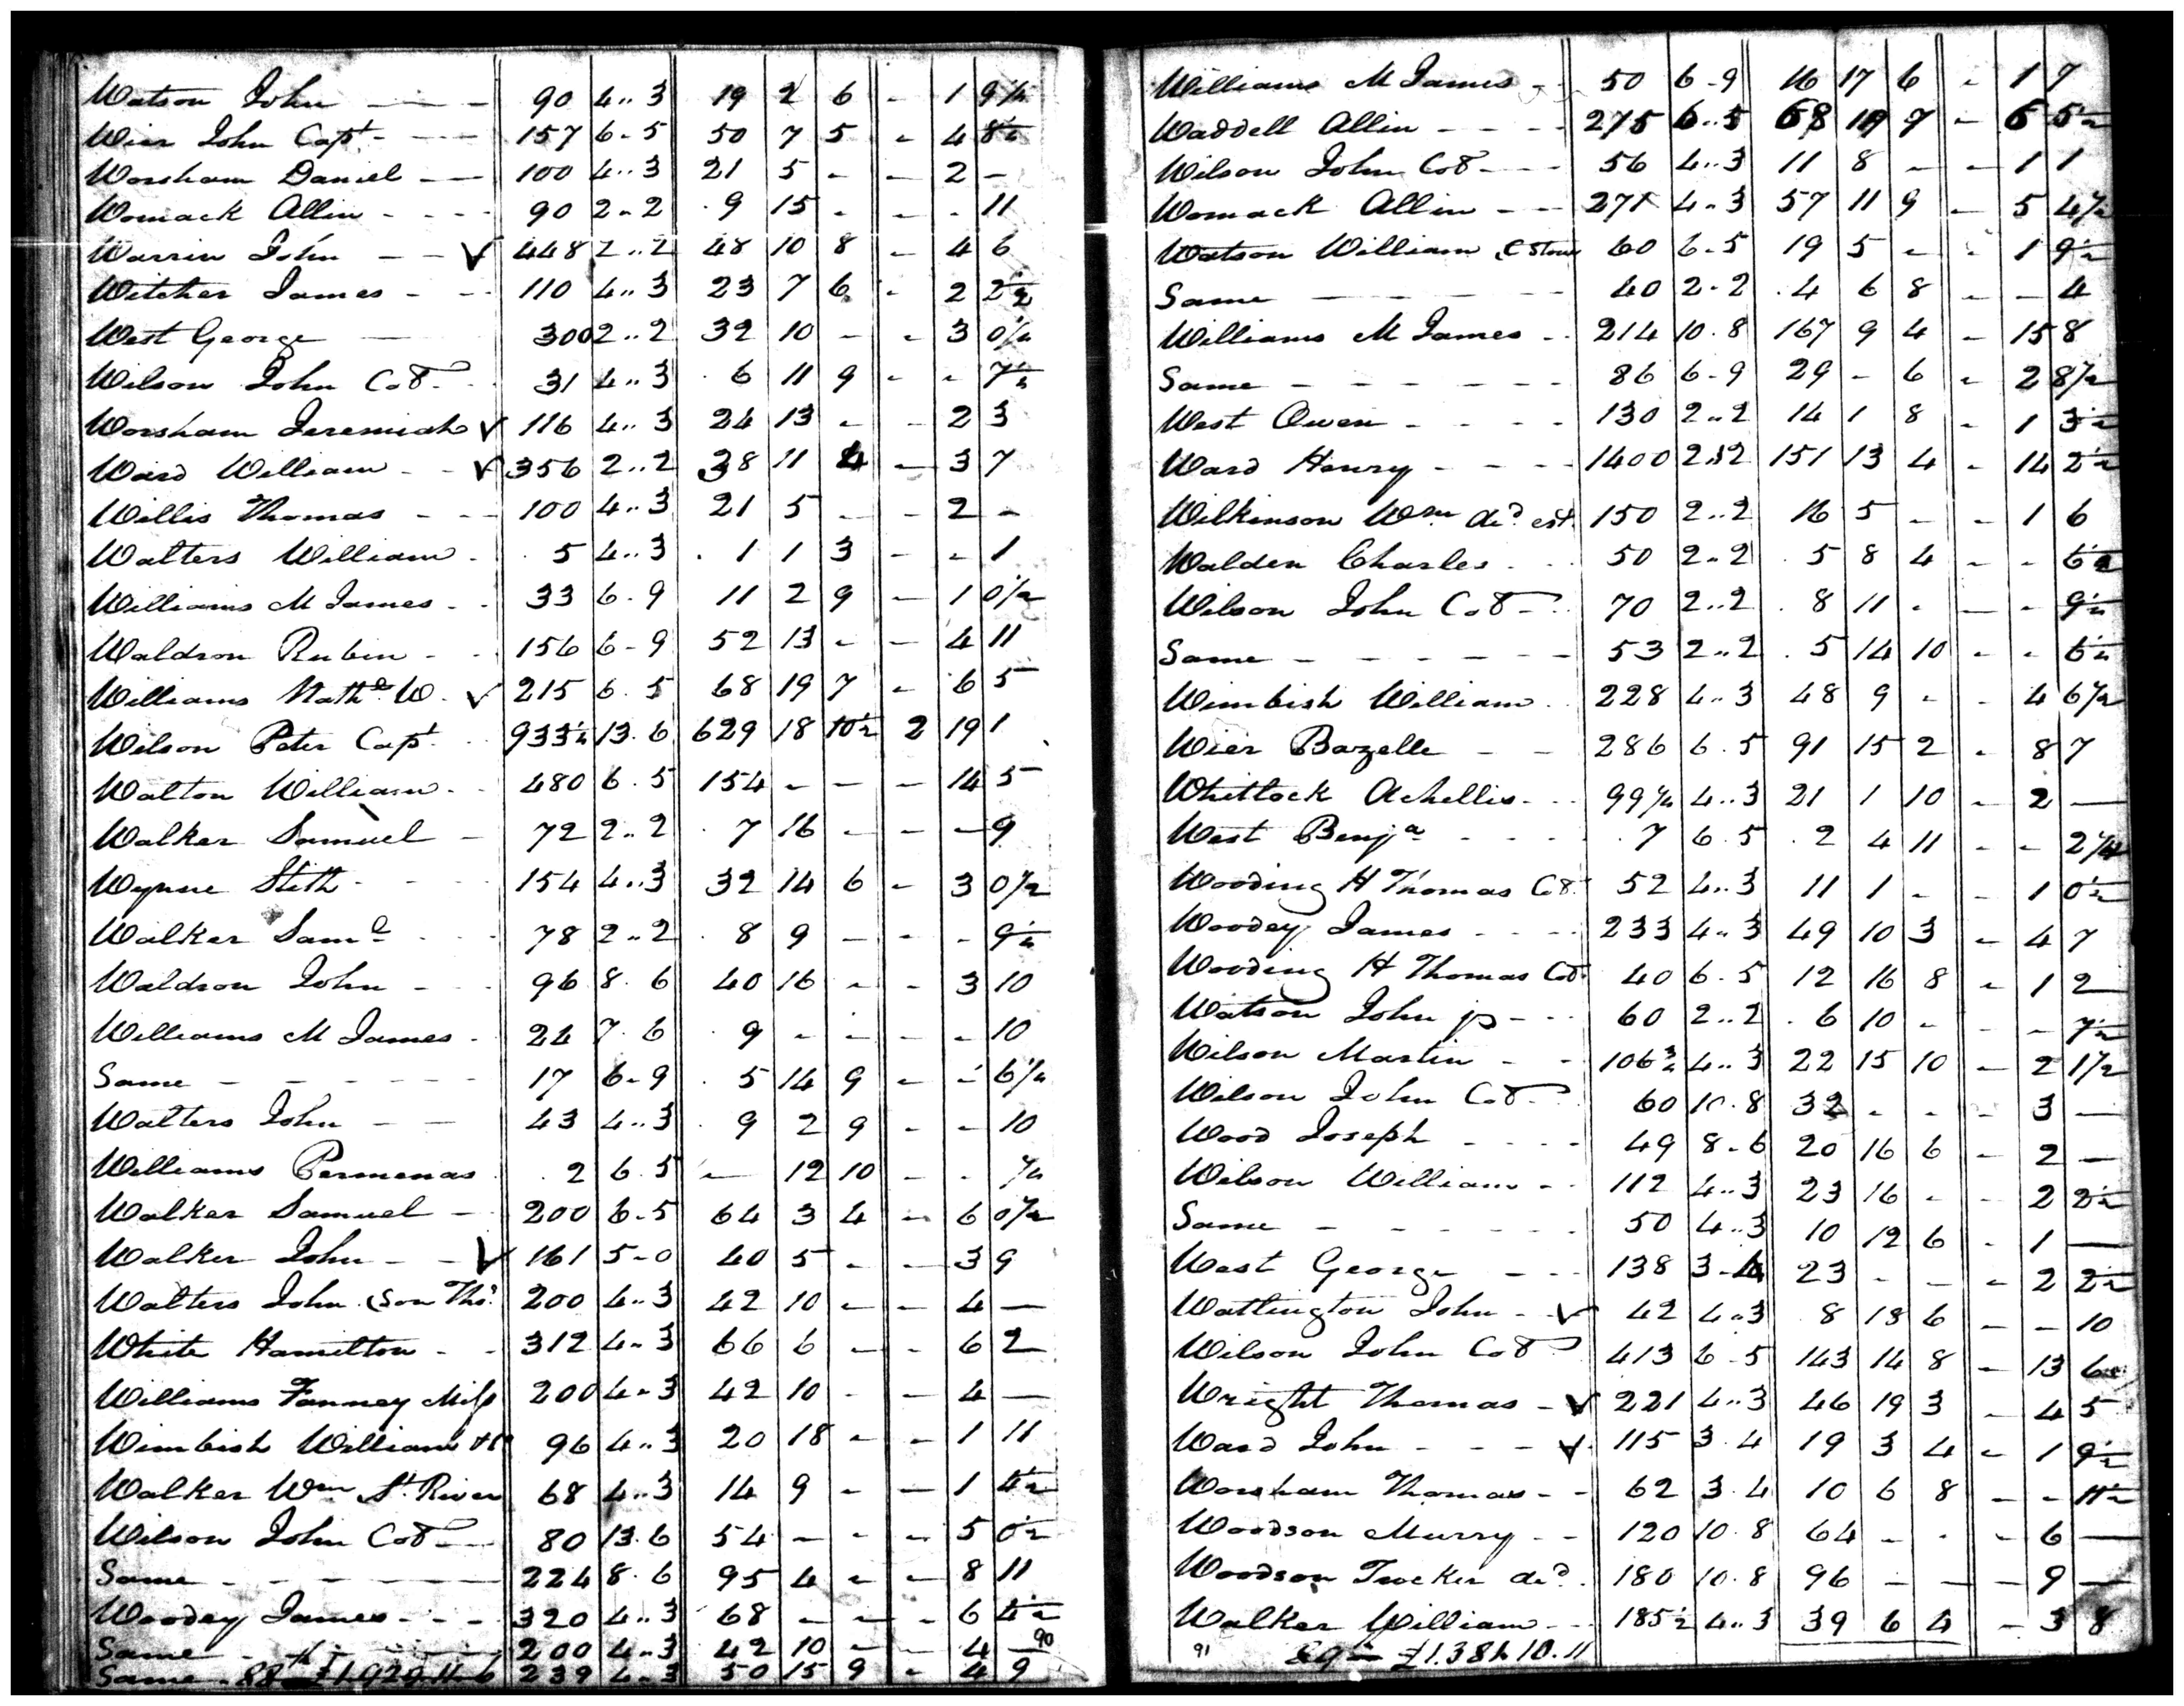 Watson John — — — 90 4..3 19 2 6 - 1 9¼
Wier John Capt. - - - 157 6-5 50 7 5 - 4 8½
Worsham Daniel — — 100 4..3 21 5 - - 2 -
Womack Allin - - - - 90 2-2 9 15 - - - 11
Warrin John — - V 448 2..2 48 10 8 - 4 6
Witcher James - - - 110 4..3 23 7 6 - 2 2½
West George — 300 2..2 32 10 - - 3 0½
Wilson John Col. 31 4..3 6 11 9 - - 7½
Worsham Jeremiah V 116 4..3 24 13 - - 2 3
Ward William - - V 356 2..2 38 11 4 - 3 7
Willis Thomas - - - 100 4..3 21 5 - - 2 -
Walters William - 5 4..3 1 1 3 - - 1
Williams M James - - 33 6-9 11 2 9 - 1 0½
Waldron Rubin - - 156 6-9 52 13 - - 4 11
Williams Nathl W. V 215 6.5 68 19 7 - 6 5
Wilson Peter Capt. 933½ 13.6 629 18 10½ 2 19 1
Walton William - - 480 6.5 154 - - - 14 5
Walker Samuel - 72 2..2 7 16 - - - 9
Wynne Stith - - - 154 4..3 32 14 6 - 3 0½
Walker Saml - - - 78 2..2 8 9 - - - 9½
Waldron John - - - 96 8.6 40 16 - - 3 10
Williams M James - 24 7.6 9 - - - - 10
Same - - - - - - 17 6-9 5 14 9 - - 6½
Walters John - - 43 4..3 9 2 9 - - 10
Williams Permenas 2 6.5 - 12 10 - -
Walker Samuel - 200 6-5 64 3 4 - 6 0½
Walker John - - V 161 5-0 40 5 - - 3 9
Walters John (Son Ths. 200 4..3 42 10 - - 4 —
White Hamilton - - 312 4-3 66 6 - - 6 2
Williams Fanney Miss 200 4-3 42 10 - - 4 —
Wimbish William & Co 96 4..3 20 18 - - 1 11
Walker Wm St. River 68 4..3 14 9 - - 1 4½
Wilson John Col. - - 80 13.6 54 - - - 5 0½
Same - - - - - 224 8.6 95 4 - - 8 11
Woodey James - - - 320 4..3 68 - - - 6 4½
Same - - - - 200 4..3 42 10 - - 4 —
90
Same - 88 £1920.11.6 239 4-3 50 15 9 - 4 9
Williams M James - - 50 6-9 16 17 6 - 1 7
Waddell Allin - - - - 275 6..5 68 19 7 - 6 5½
Wilson John Col. - - - 56 4..3 11 8 - - 1 1
Womack Allin - - - 271 4..3 57 11 9 - 5 4½
Watson William 60 6-5 19 5 - - 1 9½
Same — — — — 40 2-2 4 6 8 - - 4
Williams M James - - 214 10.8 167 9 4 - 15 8
Same - - - - - - 86 6-9 29 - 6 - 2 8½
West Owen - - - - 130 2..2 14 1 8 - 1 3½
Ward Henry - - - - 1400 2..2 151 13 4 - 14 2½
Wilkinson Wm. decd. est. 150 2..2 16 5 - - 1 6
Walden Charles - - - 50 2-2 5 8 4 - - 6½
Wilson John Col. - - 70 2..2 8 11 - - - 9½
Same - - - - - - 53 2..2 5 14 10 - - 6½
Wimbish William - - 228 4..3 48 9 - - 4 6½
Wier Bazelle - - 286 6.5 91 15 2 - 8 7
Whitlock Achellis - - - 99¼ 4..3 21 1 10 - 2 —
West Benja - - - - 7 6.5 2 4 11 - - 2¼
Wooding H Thomas Col. 52 4..3 11 1 - - 1 0½
Woodey James - - - - 233 4..3 49 10 3 - 4 7
Wooding H Thomas Col. 40 6-5 12 16 8 - 1 2
Watson John jr - - - 60 2..2 6 10 - - - 7½
Wilson Martin - - 106½ 4..3 22 15 10 - 2 1½
Wilson John Col. - - 60 10.8 32 - - - 3 —
Wood Joseph - - - - 49 8-6 20 16 6 - 2 —
Wilson William - - 112 4..3 23 16 - - 2 2½
Same - - - - - - 50 4..3 10 12 6 - 1 —
West George - - - 138 3-4 23 - - - 2 2½
Watlington John - V 42 4..3 8 18 6 - - 10
Wilson John Col. 413 6-5 143 14 8 - 13 6
Wright Thomas - V 221 4..3 46 19 3 - 4 5
Ward John - - - V 115 3.4 19 3 4 - 1 9½
Worsham Thomas - - 62 3.4 10 6 8 - - 11½
Woodson Murry - - 120 10.8 64 - - - 6 —
Woodson Tucker decd. 180 10.8 96 - - - 9 —
Walker William - - 185½ 4..3 39 6 4 - 3 8
91 £1.384.10.11